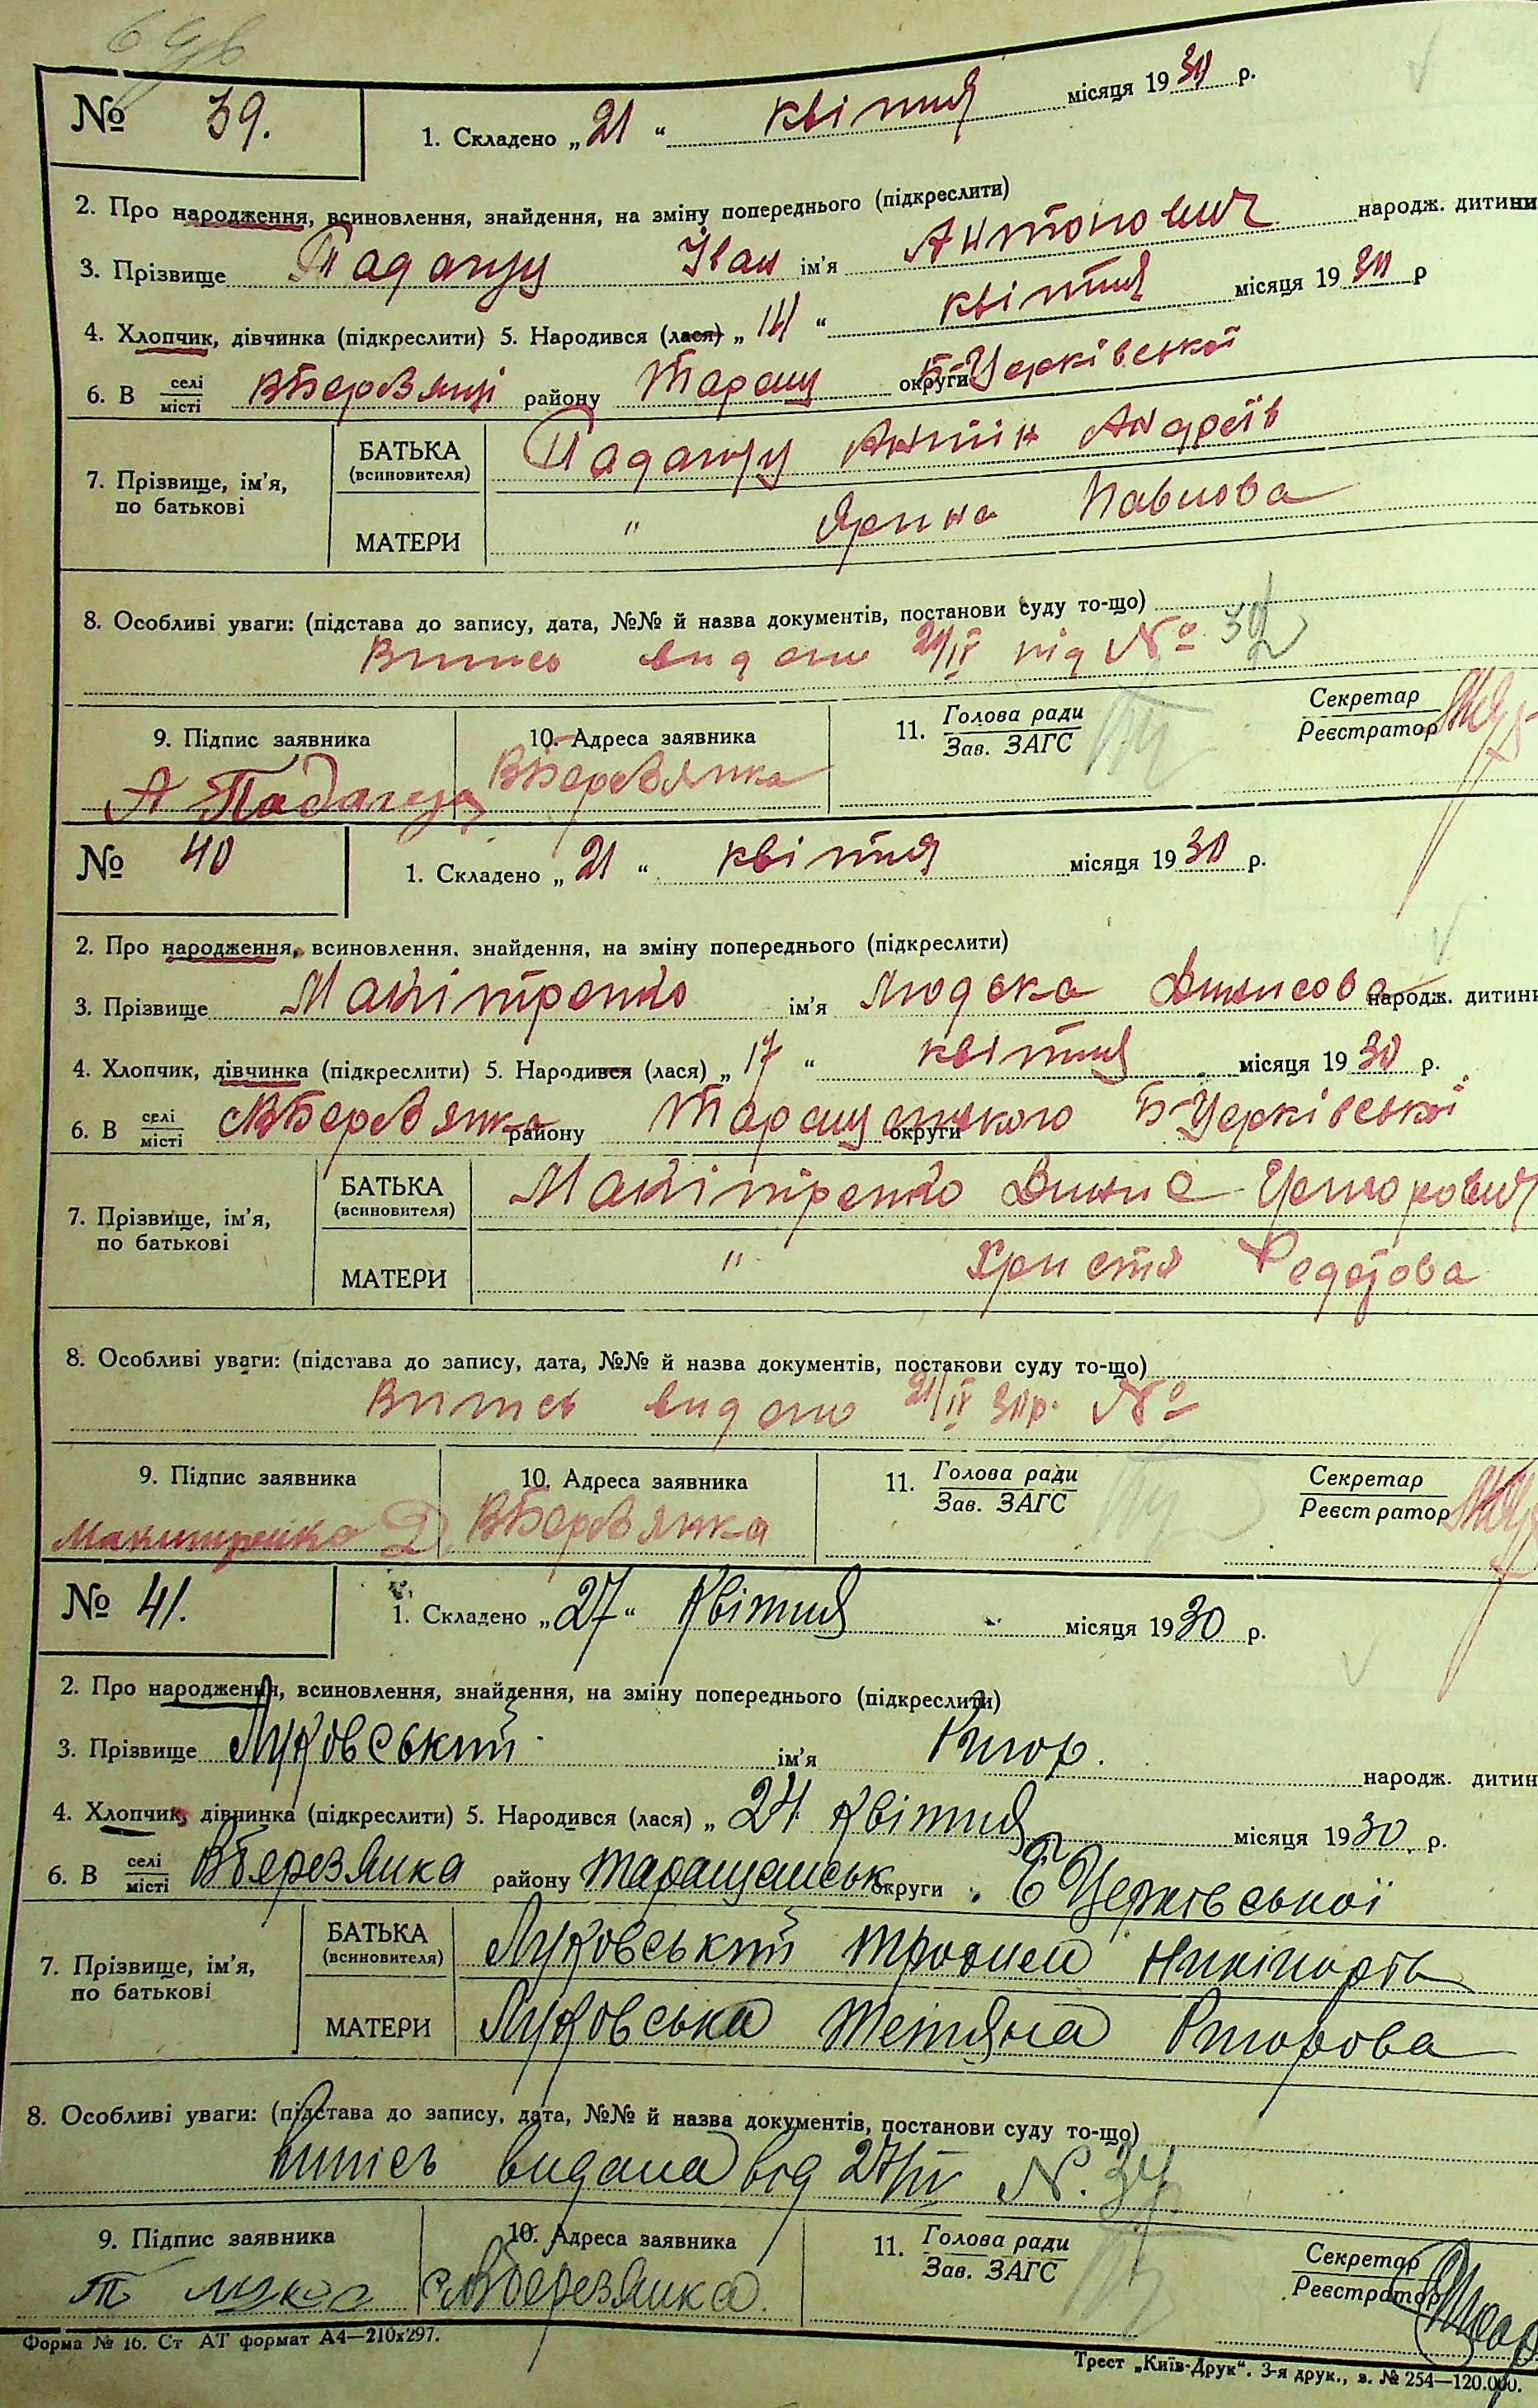 № 39.
1. Складено „21“ квітня місяця 1930 р.
2. Про народження, всиновлення, знайдення, на зміну попереднього (підкреслити)
3. Прізвище Іван ім'я Антонович народж. дитини
4. Хлопчик, дівчинка (підкреслити) 5. Народився (лася) „14“ квітня місяця 1930 р
6. В селі/місті району Таращ округи Б-Церківської
7. Прізвище, ім'я, по батькові
БАТЬКА (всиновителя) Антін Андреїв
МАТЕРИ " Ярина Павлова
8. Особливі уваги: (підстава до запису, дата, №№ й назва документів, постанови суду то-що)
Випись видано 21/IV під №
9. Підпис заявника
10. Адреса заявника
11. Голова ради/Зав. ЗАГС
Секретар/Реєстратор
ВБерезянка
№ 40
1. Складено „21“ квітня місяця 1930 р.
2. Про народження, всиновлення, знайдення, на зміну попереднього (підкреслити)
3. Прізвище Макітренко ім'я народж. дитини
4. Хлопчик, дівчинка (підкреслити) 5. Народився (лася) „17“ квітня місяця 1930 р.
6. В селі/місті ВБерезянка району Таращанського округи Б-Церківської
7. Прізвище, ім'я, по батькові
БАТЬКА (всиновителя) Макітренко
МАТЕРИ " Христя Федорова
8. Особливі уваги: (підстава до запису, дата, №№ й назва документів, постанови суду то-що)
Випись видано 21/IV 30р. №
9. Підпис заявника
10. Адреса заявника
11. Голова ради/Зав. ЗАГС
Секретар/Реєстратор
Макитренко Д. ВБерезянка
№ 41.
1. Складено „27“ Квітня місяця 1930 р.
2. Про народження, всиновлення, знайдення, на зміну попереднього (підкреслити)
3. Прізвище Луковський ім'я народж. дитин
4. Хлопчик, дівчинка (підкреслити) 5. Народився (лася) „24 Квітня місяця 1930 р.
6. В селі/місті ВБерезянка району Таращанськ округи Б Церківської
7. Прізвище, ім'я, по батькові
БАТЬКА (всиновителя) Луковський
МАТЕРИ Луковська Тетяна
8. Особливі уваги: (підстава до запису, дата, №№ й назва документів, постанови суду то-що)
Випісь видана від 27/IV N.
9. Підпис заявника
10. Адреса заявника
11. Голова ради/Зав. ЗАГС
Секретар/Реєстратор
с ВБерезянка.
Форма № 16. Ст АТ формат А4—210х297.
Трест „Київ-Друк“. 3-я друк., з. № 254—120.000.